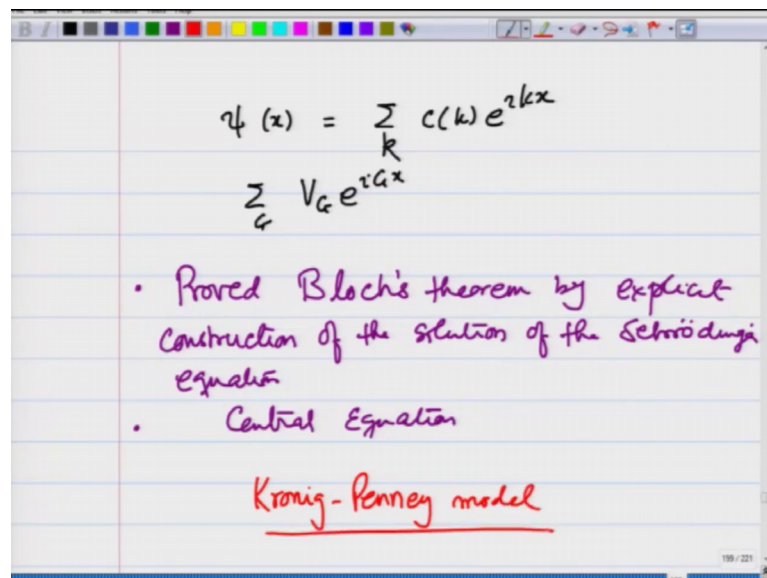 B I
ψ (x) = Σ c(k) e^{ikx}
k
Σ V_G e^{iGx}
G
• Proved Bloch's theorem by explicit
construction of the solution of the Schrödinger
equation
• Central Equation
Kronig-Penney model
199 / 221